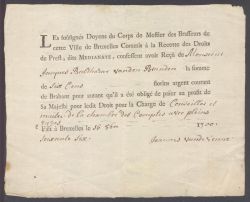 LEs soussignés Doyens du Corps de Messer des Brasseurs de
cette Ville de Bruxelles Commis à la Recette des Droits
de Prest, dits MEDIANATE, confessent avoir Reçû de Monsieur
Jacques Balthazar vanden la somme
de Six Cens florins argent courant
de Brabant pour autant qu'il a été obligé de païer au profit de
Sa Majesté pour ledit Droit pour la Charge de Conseiller et
maitre de la chambre des Comptes avec pleins
gages
Fait à Bruxelles le 16 1700
soixante six